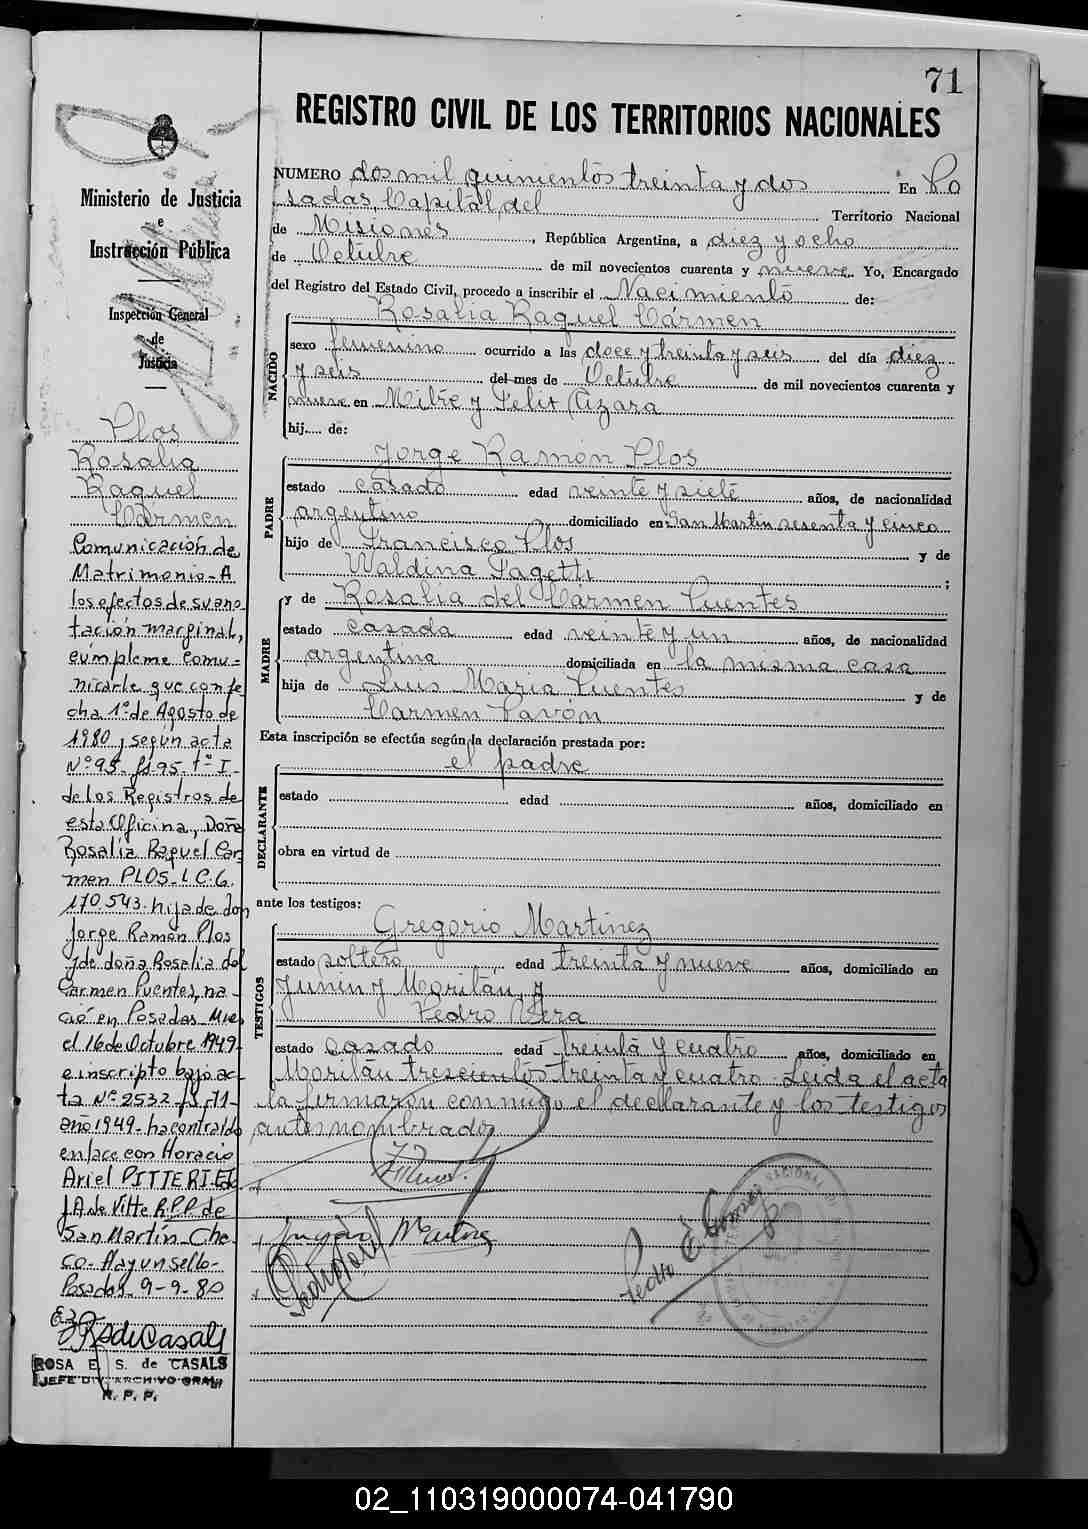 71
REGISTRO CIVIL DE LOS TERRITORIOS NACIONALES
Ministerio de Justicia
e
Instrucción Pública
Inspección General
de
Justicia
Plos
Rosalia
Raquel
Carmen
Comunicación de
Matrimonio - A
los efectos de su ano-
tación marginal,
cúmpleme comu-
nicarle que con fe
cha 1º de Agosto de
1980 y según acta
Nº 95 - fs 95 - tº I -
de los Registros de
esta Oficina, Doña
Rosalía Raquel Car
men PLOS - L.C. 6.
170.543 - hija de don
Jorge Ramón Plos
y de doña Rosalia del
Carmen Puentes, na-
ció en Posadas Mnes
el 16 de Octubre 1949 -
e inscripto bajo ac-
ta Nº 2532 - fs 71 -
año 1949 - ha contraído
enlace con Horacio
Ariel PITTERI - El
J.A de Vitto R.P.P de
San Martín - Cha
co - Hay un sello -
Posadas 9-9-80
ROSA E. S. de CASALS
JEFE DIV. ARCHIVO GRAL.
R. P. P.
NUMERO dos mil quinientos treinta y dos En Po
sadas Capital del Territorio Nacional
de Misiones, República Argentina, a diez y ocho
de Octubre de mil novecientos cuarenta y nueve Yo, Encargado
del Registro del Estado Civil, procedo a inscribir el Nacimiento de:
NACIDO
Rosalia Raquel Cármen
sexo femenino ocurrido a las doce y treinta y seis del día diez
y seis del mes de Octubre de mil novecientos cuarenta y
nueve en Mitre y Felix Azara
hij.... de:
PADRE
Jorge Ramón Plos
estado casado edad veinte y siete años, de nacionalidad
argentino domiciliado en San Martin sesenta y cinco
hijo de Francisco Plos y de
Waldina Pagetti ;
MADRE
y de Rosalia del Carmen Puentes
estado casada edad veinte y un años, de nacionalidad
argentina domiciliada en la misma casa
hija de Luis Maria Puentes y de
Carmen Pavón
Esta inscripción se efectúa según la declaración prestada por:
DECLARANTE
el padre
estado edad años, domiciliado en
obra en virtud de
ante los testigos:
TESTIGOS
Gregorio Martinez
estado soltero, edad treinta y nueve años, domiciliado en
Junin y Moritán, y
Pedro Vera
estado casado edad treinta y cuatro años, domiciliado en
Moritán trescientos treinta y cuatro. Leida el acta
la firmaron conmigo el declarante y los testigos
antes nombrados
Pedro E Gomez
02_110319000074-041790